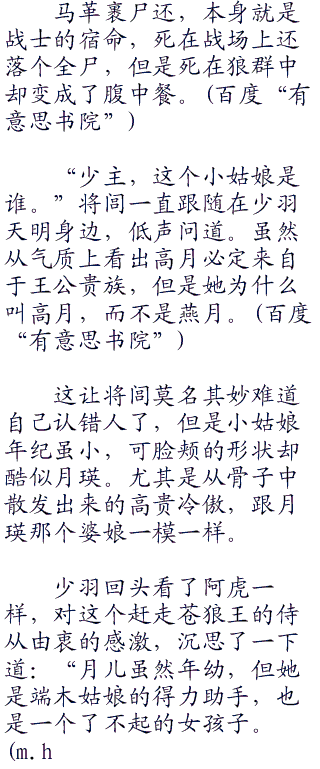 马革裹尸还，本身就是
战士的宿命，死在战场上还
落个全尸，但是死在狼群中
却变成了腹中餐。(百度“有
意思书院”)
“少主，这个小姑娘是
谁。”将闾一直跟随在少羽
天明身边，低声问道。虽然
从气质上看出高月必定来自
于王公贵族，但是她为什么
叫高月，而不是燕月。(百度
“有意思书院”)
这让将闾莫名其妙难道
自己认错人了，但是小姑娘
年纪虽小，可脸颊的形状却
酷似月瑛。尤其是从骨子中
散发出来的高贵冷傲，跟月
瑛那个婆娘一模一样。
少羽回头看了阿虎一
样，对这个赶走苍狼王的侍
从由衷的感激，沉思了一下
道：“月儿虽然年幼，但她
是端木姑娘的得力助手，也
是一个了不起的女孩子。
(m.h